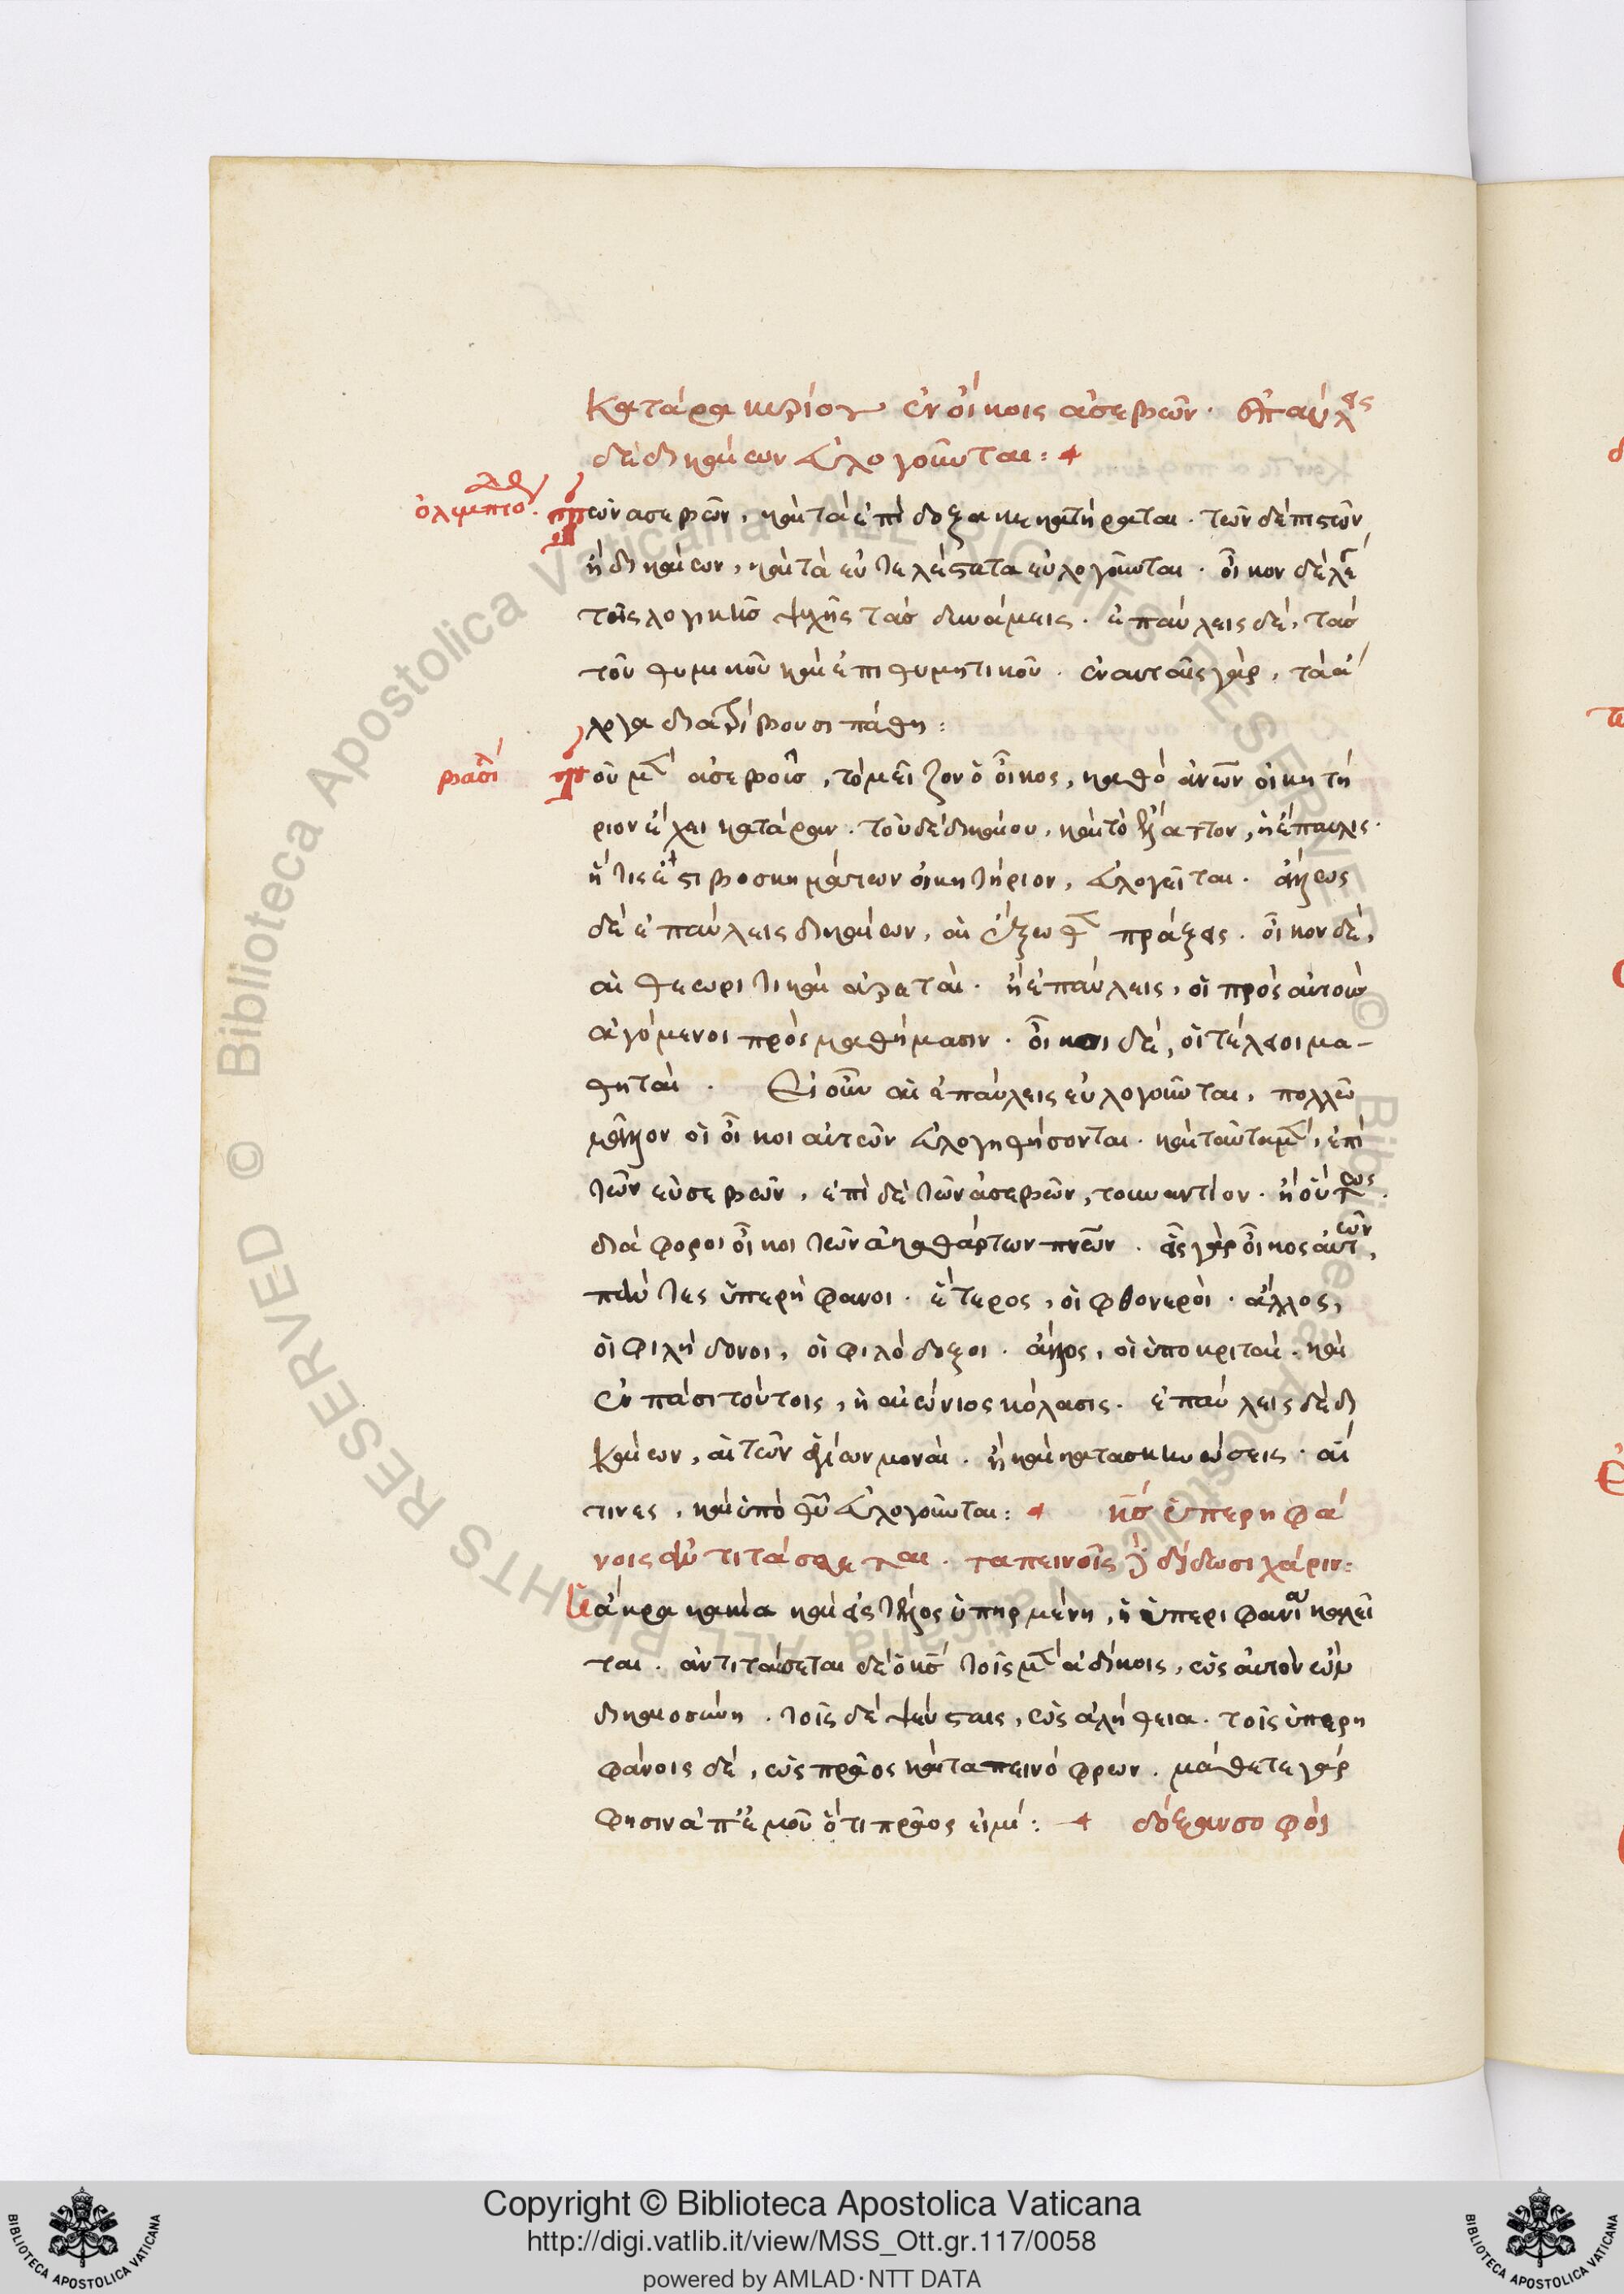 κατάρα κυρίου ἐν οἴκοις ἀσεβῶν. ἐπαύλεις
δὲ δικαίων εὐλογοῦνται:
ὀλυμπιο
τῶν ἀσεβῶν, καὶ τὰ ἐπίδοξα κεκατήραται. τῶν δὲ πιστῶν
ἢ δικαίων, καὶ τὰ εὐτελέστατα εὐλογοῦνται. οἶκον δὲ λέγει
τῆς λογικῆς ψυχῆς τὰς δυνάμεις. ἐπαύλεις δὲ, τὰς
τοῦ θυμικοῦ καὶ ἐπιθυμητικοῦ. ἐν αυταῖς γὰρ, τὰ ἄ
λογα διατρίβουσι πάθη:
βασιλ
τοῦ μὲν ἀσεβοῦς, τὸ μεῖζον ὁ οἶκος, καθὸ ἀνθρώπων οἰκητή
ριον ἔχει κατάραν. τοῦ δὲ δικαίου, καὶ τὸ ἔλαττον, ἡ ἔπαυλις.
ἥτις ἐστι βοσκημάτων οἰκητήριον, εὐλογεῖται. ἄλλως
δὲ ἐπαύλεις δικαίων, αἱ ἔξωθεν πράξεις. οἶκον δὲ,
αἱ θεωριτικαὶ ἀρεταὶ. ἢ ἐπαύλεις, οἱ πρὸς αὐτοὺς
ἀγόμενοι πρὸς μαθήμασιν. οἶκοι δὲ, οἱ τέλειοι μα-
θηταὶ. Εἰ οὖν αἱ ἐπαύλεις εὐλογοῦνται, πολλῶ
μᾶλλον οἱ οἶκοι αὐτῶν εὐλογηθήσονται. καὶ ταῦτα μὲν, ἐπὶ
τῶν εὐσεβῶν, ἐπὶ δὲ τῶν ἀσεβῶν, τουναντίον. ἢ οὕτως.
διάφοροι οἶκοι τῶν ἀκαθάρτων πνευμάτων. εἷς γὰρ οἶκος αὐτῶν,
πάντες ὑπερήφανοι. ἕτερος, οἱ φθονεροὶ. ἄλλος,
οἱ φιλήδονοι, οἱ φιλόδοξοι. ἄλλος, οἱ ὑποκριταὶ. καὶ
ἐν πάσι τούτοις, ἡ αἰώνιος κόλασις. ἐπαύλεις δὲ δι
καίων, αἱ τῶν ἁγίων μοναὶ. ἢ καὶ κατασκηνώσεις. αἵ
τινες, καὶ ὑπὸ θεοῦ εὐλογοῦνται: κύριος ὑπερηφά
νοις ἀντιτάσσεται. ταπεινοῖς δὲ δίδωσι χάριν:
ἡ ἄκρα κακία καὶ εἰς τέλος ὑπηρμένη, ἡ ὑπεριφανία καλεῖ
ται. ἀντιτάσεται δὲ ὁ κύριος τοῖς μὲν ἀδίκοις, ὡς αὐτὸν ὢν
δικαιοσύνη. τοῖς δὲ ψεύσταις, ὡς ἀλήθεια. τοῖς ὑπερη
φάνοις δὲ, ὡς πρᾶος καὶ ταπεινόφρων. μάθετε γάρ
φησιν ἀπ' ἐμοῦ ὅτι πρᾶος εἰμὶ: δόξαν σοφοὶ
Copyright © Biblioteca Apostolica Vaticana
http://digi.vatlib.it/view/MSS_Ott.gr.117/0058
powered by AMLAD·NTT DATA
BIBLIOTECA APOSTOLICA VATICANA
BIBLIOTECA APOSTOLICA VATICANA